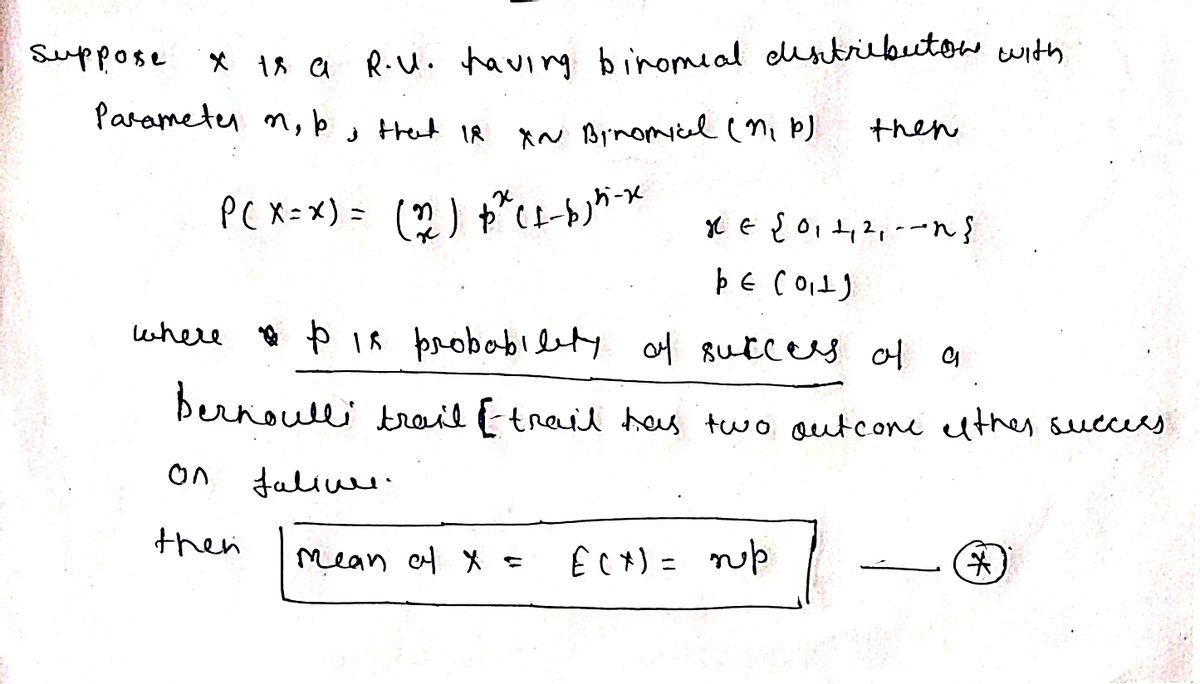 Suppose X is a R.V. having binomial distribution with
Parameter n, p, that is X ~ Binomial (n, p) then
P(X=x) = (n x) p^x (1-p)^n-x    x ∈ {0, 1, 2, --- n}
p ∈ (0,1)
where p is probability of success of a
bernoulli trail [-trail has two outcone either success
or faliure.
then Mean of X = E(X) = np — *